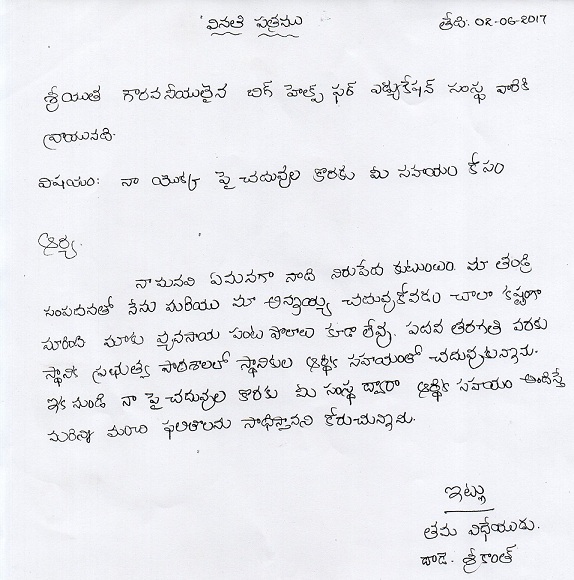 వినతి పత్రము
తేది. 02-06-2017
శ్రీయుత గౌరవనీయులైన బిగ్ హెల్ప్ ఫర్ ఎడ్యుకేషన్ సంస్థ వారికి
వ్రాయునది.
విషయం: నా యొక్క పై చదువుల కొరకు మీ సహాయం కోసం
ఆర్య,
నా మనవి ఏమనగా నాది నిరుపేద కుటుంబం. మా తండ్రి
సంపాదనతో నేను మరియు మా అన్నయ్య చదువుకోవడం చాలా కష్టంగా
మారింది మాకు వ్యవసాయ పంట పొలాలు కూడా లేవు. పదవ తరగతి వరకు
స్థానిక ప్రభుత్వ పాఠశాలలో స్థానికుల ఆర్థిక సహాయంతో చదువుకున్నాను.
ఇక నుండి నా పై చదువుల కొరకు మీ సంస్థ ద్వారా ఆర్థిక సహాయం అందిస్తే
మరిన్ని మంచి ఫలితాలను సాధిస్తానని కోరుచున్నాను.
ఇట్లు
తమ విధేయుడు.
దాడె. శ్రీకాంత్